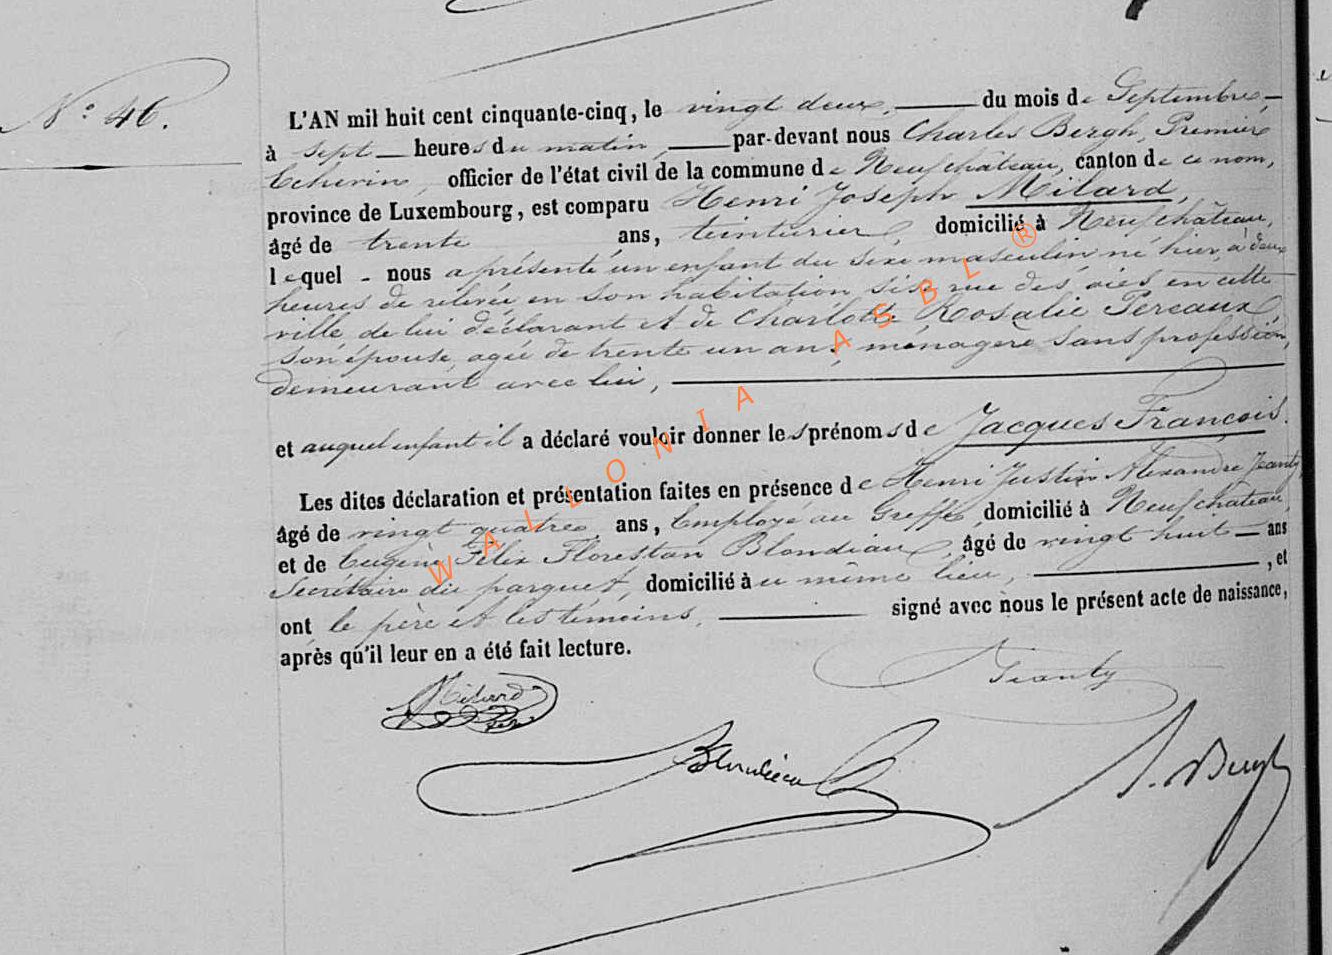 N° 46.
L'AN mil huit cent cinquante-cinq, le vingt deux, du mois de Septembre,
à sept heures du matin, par-devant nous Charles Bergh, Premier
Echevin, officier de l'état civil de la commune de Neufchâteau, canton de ce nom,
province de Luxembourg, est comparu Henri Joseph Milard,
âgé de trente ans, teinturier, domicilié à Neufchâteau,
lequel nous a présenté un enfant du sexe masculin né hier, à deux
heures de relevée en son habitation sise rue des oies en cette
ville de lui déclarant et de Charlotte Rosalie Pereaux,
son épouse, agée de trente un ans, ménagere sans profession,
demeurant avec lui,
et auquel enfant il a déclaré vouloir donner les prénoms de Jacques François.
Les dites déclaration et présentation faites en présence de Henri Justin Alexandre Jeanty
âgé de vingt quatre ans, Employé au Greffe domicilié à Neufchateau,
et de Eugène Félix Florestan Blondiaux, âgé de vingt huit ans
Secrétaire du parquet, domicilié au même lieu, , et
ont le père et les témoins, signé avec nous le présent acte de naissance,
après qu'il leur en a été fait lecture.
Milard
Jeanty
Blondiau
Bergh
WALLONIA ASBL ®